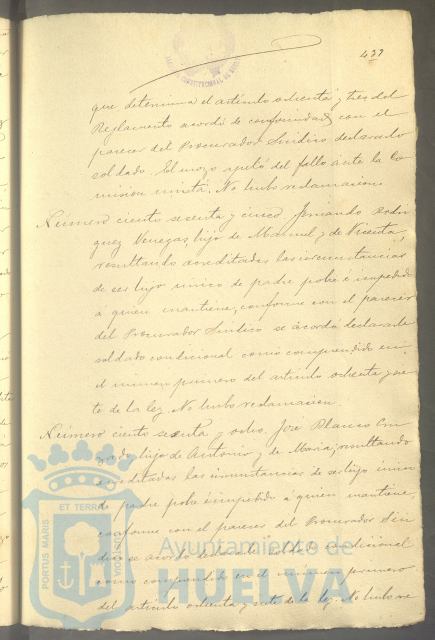 437
que determina el artículo ochenta y tres del
Reglamento acordó de conformidad con el
parecer del Procurador Síndico declararlo
soldado. El mozo apeló del fallo ante la Co
misión mixta. No hubo reclamacion.
Número ciento sesenta y cinco. Fernando Rodri
guez Venegas hijo de Manuel y de Vicenta,
resultando acreditadas las circunstancias
de ser hijo único de padre pobre é impedido
á quien mantiene, conforme con el parecer
del Procurador Síndico se acordó declararle
soldado condicional como comprendido en
el número primero del artículo ochenta y sie
te de la ley. No hubo reclamacion.
Número ciento sesenta y ocho. José Blanco
hijo de Antonio y de Maria; resultando
acreditadas las circunstancias de ser hijo único
de padre pobre é impedido á quien mantiene,
conforme con el parecer del Procurador Sín
dico se acordó declararle soldado condicional
como comprendido en el número primero
del artículo ochenta y siete de la ley. No hubo re
PORTUS MARIS
ET TERRÆ
Ayuntamiento de
HUELVA